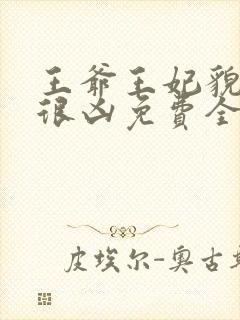 王爷王妃貌
很凶免费全
皮埃尔-奥古